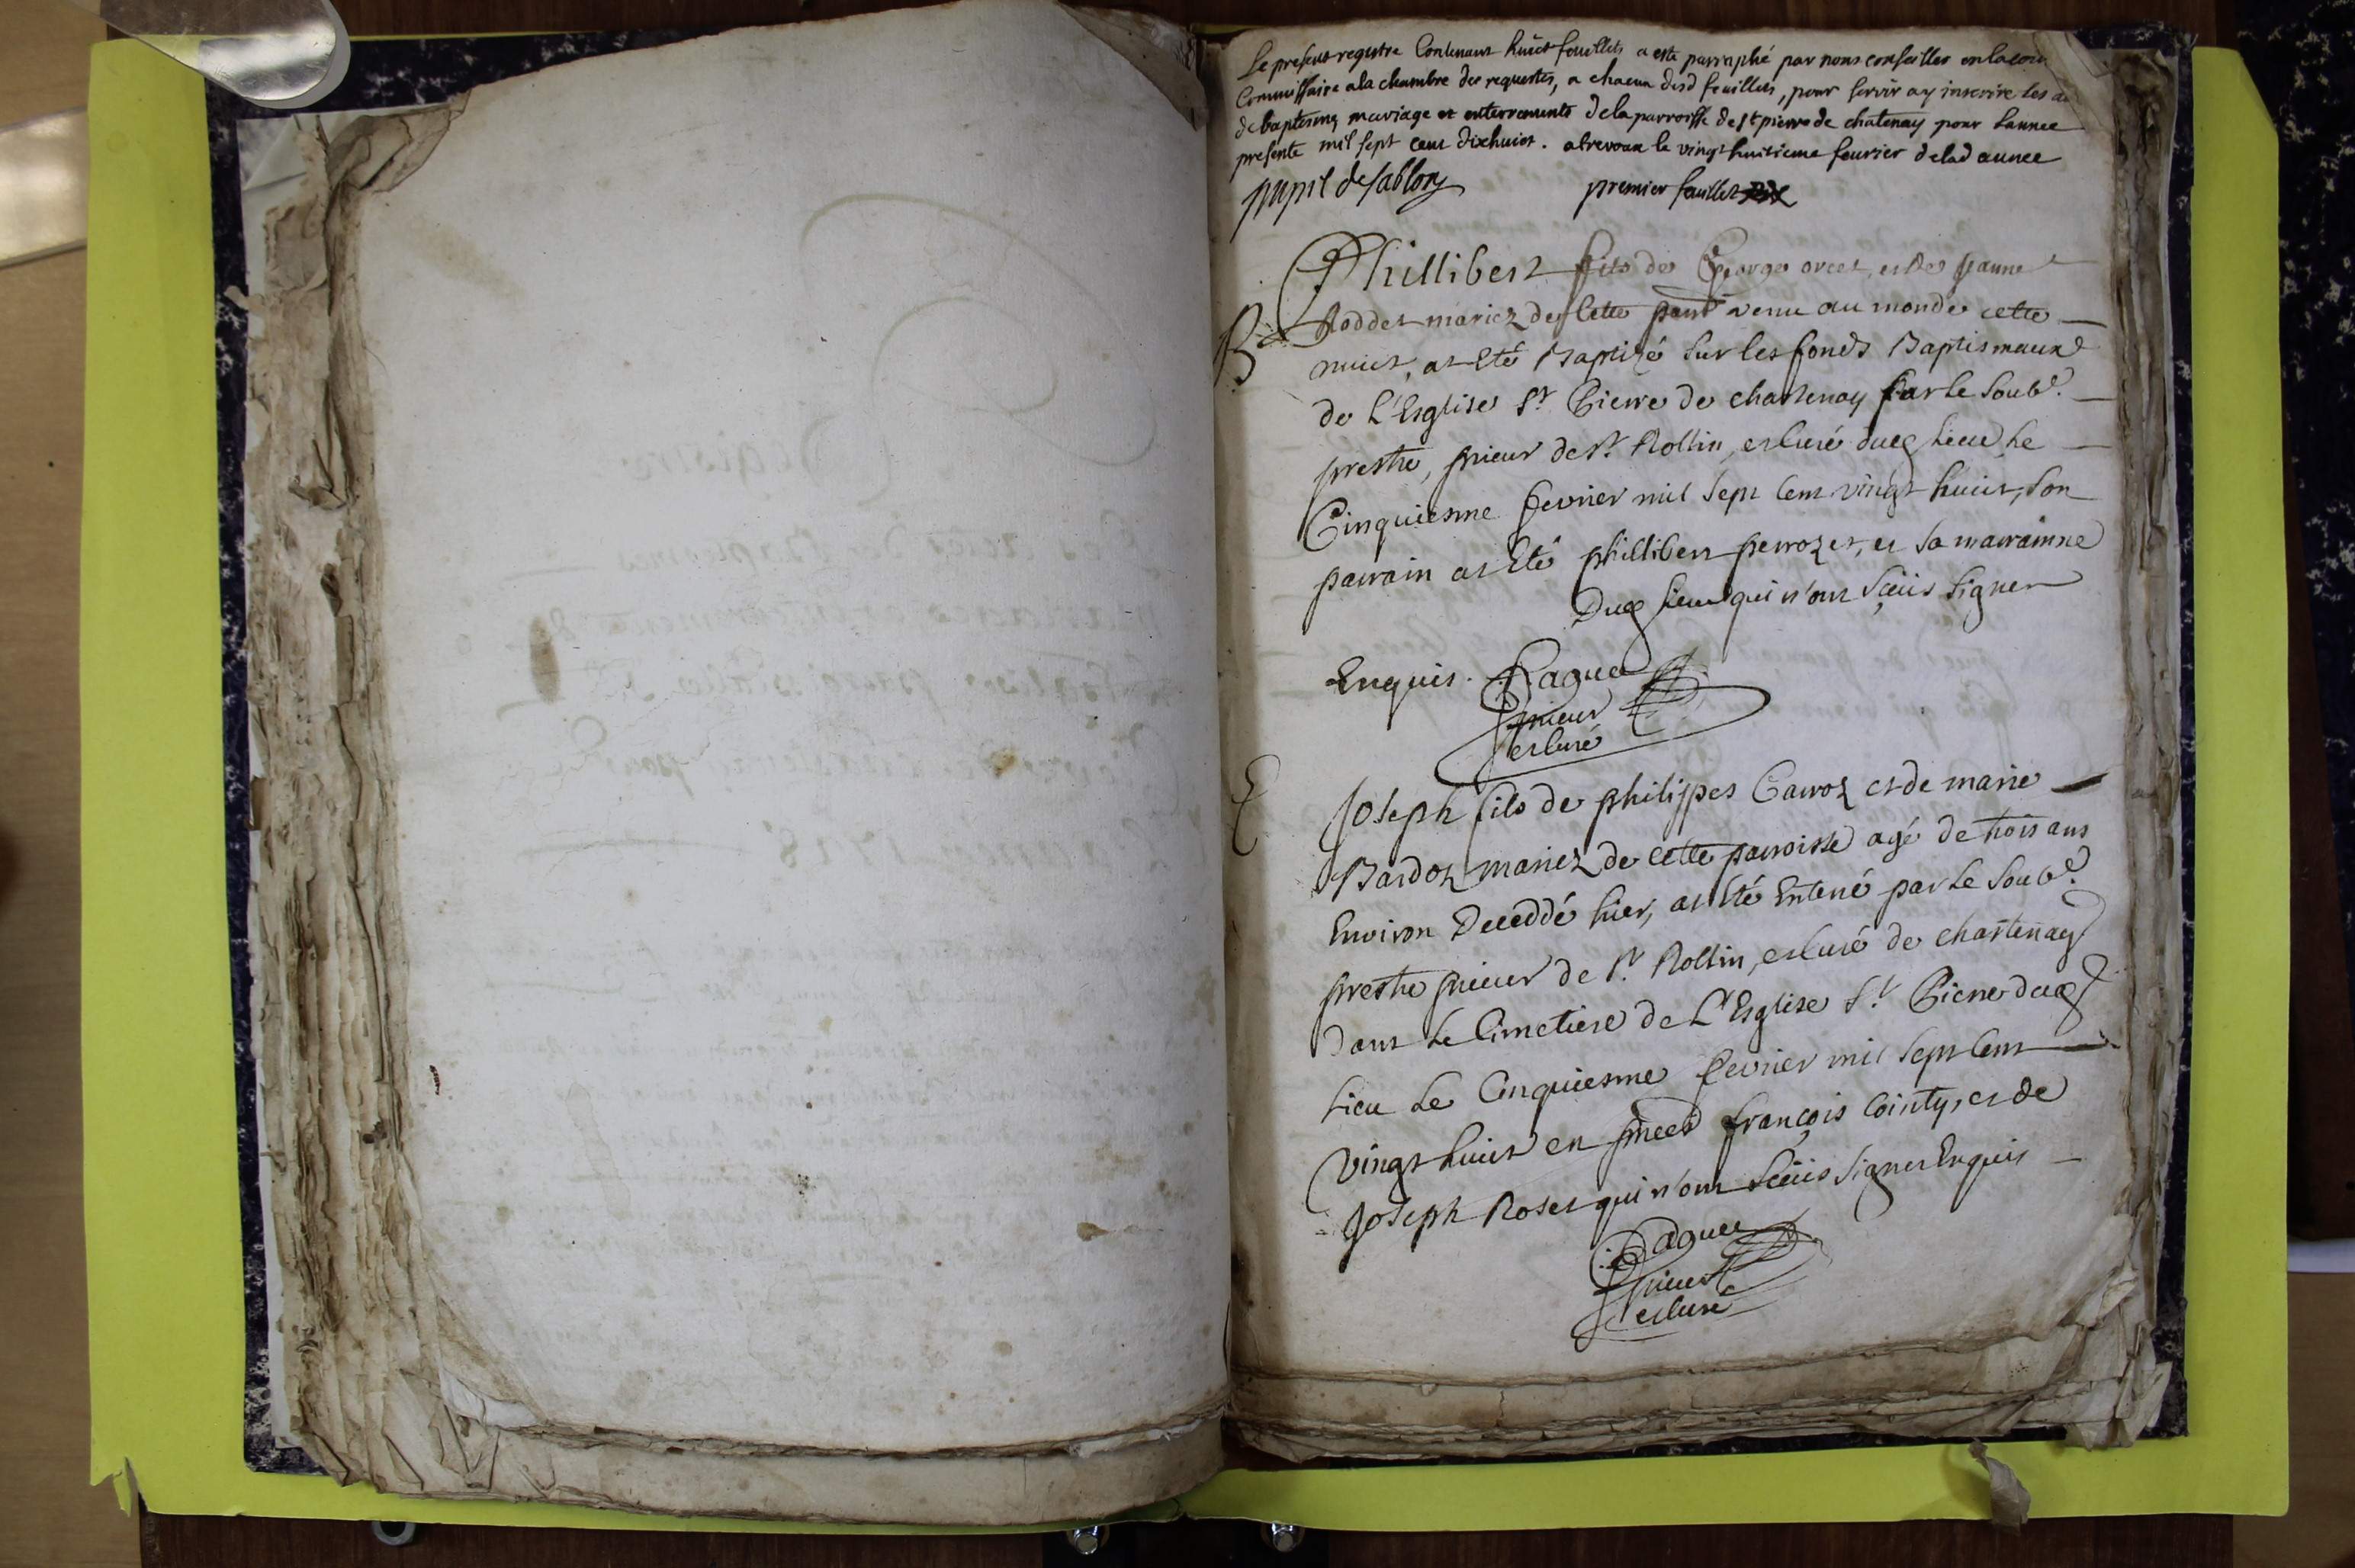 Le present registre Contenant huict feuillets a esté parraphé par nous conseiller en la cour
Commissaire a la chambre des requestes, a chacun desd feuillets, pour servir a y inscrire les a
de baptesmes mariage et enterrements de la parroisse de st pierre de chatenay pour lannee
presente mil sept cent dixhuict. a trevoux le vingt huitieme feurier de lad annee
pupil de sablon
premier feuillet
Phillibert fils de George orcet, et de jeanne
Roddet mariez de cette parr venu au monde cette
B
nuict, at Eté Baptizé sur les fonds Baptismaux
de L'Esglise St Pierre de chastenay par le soubé.
prestre, prieur de St. Rollin, et curé dud lieu, le
Cinquiesme fevrier mil sept cent vingt huict, son
parrain at Eté phillibert perrozet, et sa marrainne
dud lieu qui n'ont sçeüs signer
Enquis. Raguet
prieur
et curé
E
Joseph fils de philippes Carroz et de marie
Bardoz mariez de cette parroisse agé de trois ans
Environ Deceddé hier, at Eté Enterré par le soubé.
prestre prieur de St. Rollin, et curé de chastenay
dans le Cimetiere de L'Esglise St. Pierre dud
lieu le Cinquiesme fevrier mil sept cent
vingt huict en pnced françois Cointy, et de
Joseph Roset qui n'ont sçeüs signer Enquis
Raguet
prieur
et curé